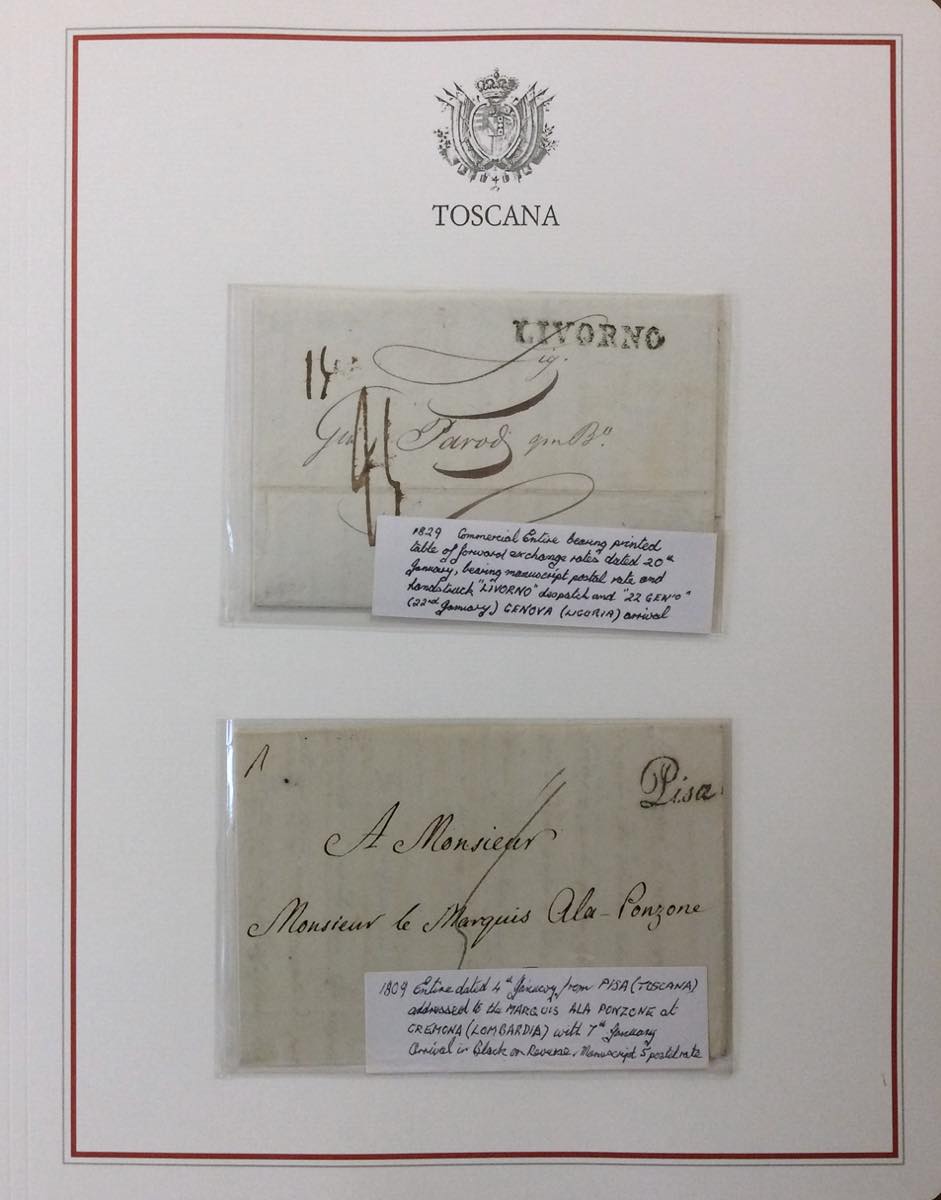 TOSCANA
LIVORNO
Sig.
14
Parodi qm Bo.
1829 Commercial Entire bearing printed
table of forward exchange rates dated 20th
January, bearing manuscript postal rate and
handstruck "LIVORNO" despatch and "22 GEN'O"
(22nd January) GENOVA (LIGURIA) arrival
Pisa
A Monsieur
Monsieur le Marquis Ala-Ponzone
1809 Entire dated 4th January, from PISA (TOSCANA)
addressed to the MARQUIS ALA PONZONE at
CREMONA (LOMBARDIA) with 7th January
Arrival in Black on Reverse, Manuscript 5 postal rate